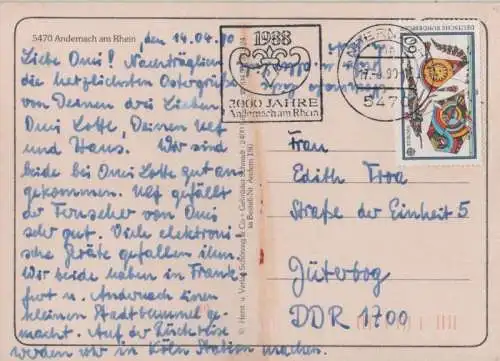 5470 Andernach am Rhein
, den 14.04.90
Liebe Omi! Nachträglich
die herzlichsten Ostergrüße
von Deinen drei Lieben,
Omi Lotte, Deinen Ulf
und Hans. Wir sind
beide bei Omi Lotte gut an-
gekommen. Ulf gefällt
der Fernseher von Omi
sehr gut. Viele elektroni-
sche Geräte gefallen ihm.
Wir beide haben in Frank-
furt u. Andernach einen
kleinen Stadtbummel ge-
macht. Auf der Rückreise
werden wir in Köln Station machen.
1988
2000 JAHRE
Andernach am Rhein
547
DEUTSCHE BUNDESPOST
60
Frau
Edith Troa
Straße der Einheit 5
Jüterbog
DDR 1700